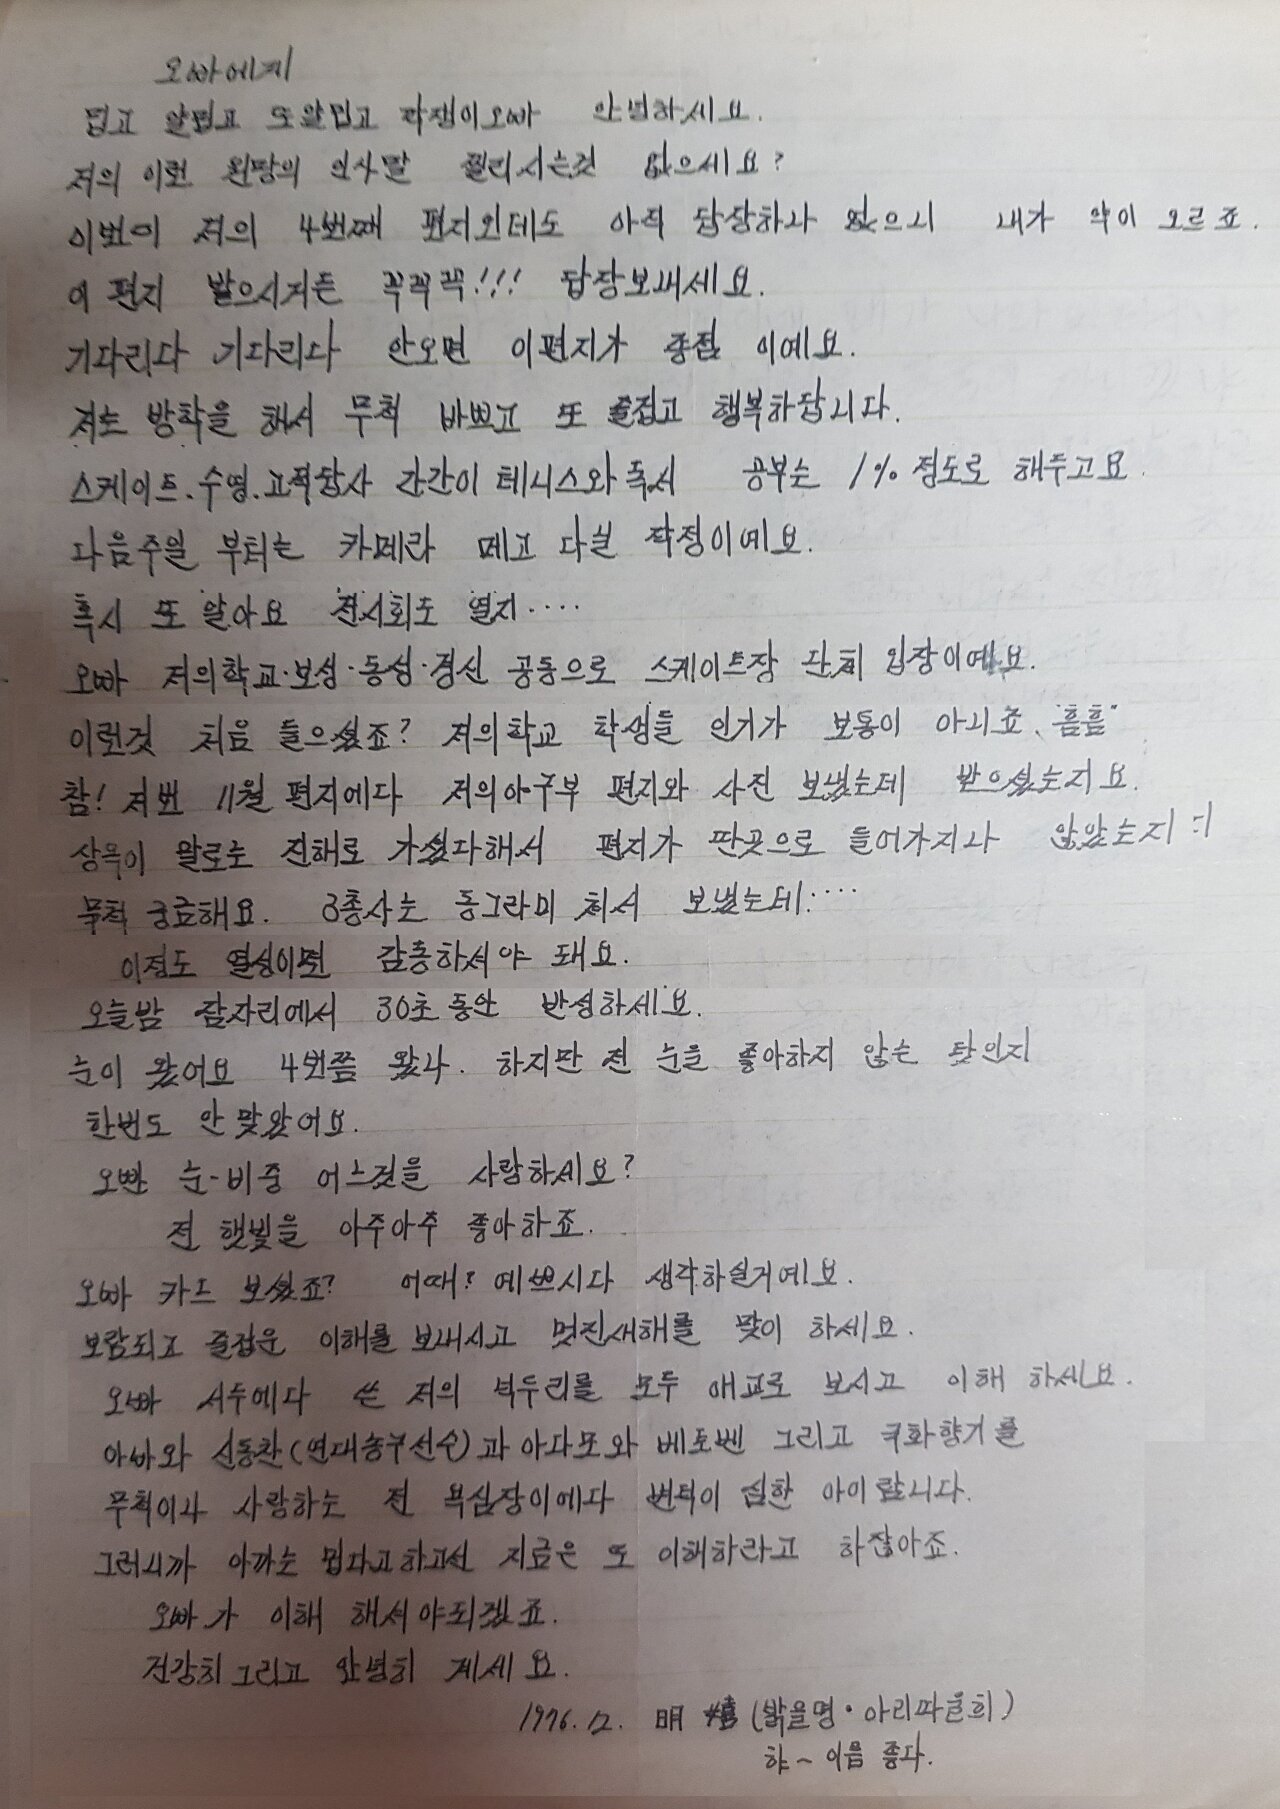 오빠에게
밉고 얄밉고 또얄밉고 깍쟁이오빠 안녕하세요.
저의 이런 원망의 인사말 찔리시는것 없으세요?
이번이 저의 4번째 편지인데도 아직 답장하나 없으니 내가 약이 오르죠.
이 편지 받으시거든 꼭꼭꼭!!! 답장보내세요.
기다리다 기다리다 안오면 이편지가 종점 이예요.
저는 방학을 해서 무척 바쁘고 또 즐겁고 행복하답니다.
스케이트.수영.고적답사 간간이 테니스와 독서 공부는 1% 정도로 해두고요.
다음주일 부터는 카메라 메고 다닐 작정이예요.
혹시 또 알아요 전시회도 열지....
오빠 저의학교.보성.동성.경신 공동으로 스케이트장 단체 입장이예요.
이런것 처음 들으셨죠? 저의학교 학생들 인기가 보통이 아니죠. "흠흠"
참! 저번 11월 편지에다 저의야구부 편지와 사진 보냈는데 받으셨는지요.
상욱이 말로는 진해로 가셨다해서 편지가 딴곳으로 들어가지나 않았는지
무척 궁금해요. 3총사는 동그라미 쳐서 보냈는데....
이정도 열성이면 감동하셔야 돼요.
오늘밤 잠자리에서 30초 동안 반성하세요.
눈이 왔어요 4번쯤 왔나. 하지만 전 눈을 좋아하지 않는 탓인지
한번도 안 맞았어요.
오빤 눈.비중 어느것을 사랑하세요?
전 햇빛을 아주아주 좋아하죠.
오빠 카드 보셨죠? 어때? 예쁘시다 생각하실거예요.
보람되고 즐거운 이해를 보내시고 멋진새해를 맞이 하세요.
오빠 서두에다 쓴 저의 넉두리를 모두 애교로 보시고 이해 하세요.
아빠와 신동찬(연대농구선수)과 아다모와 베토벤 그리고 국화향기를
무척이나 사랑하는 전 욕심장이에다 변덕이 심한 아이랍니다.
그러니까 아까는 밉다고하고선 지금은 또 이해하라고 하잖아죠.
오빠가 이해 해셔야되겠죠.
건강히 그리고 안녕히 계세요.
1976.12. 明嬉 (밝을명·아리따울희)
햐~ 이름 좋다.